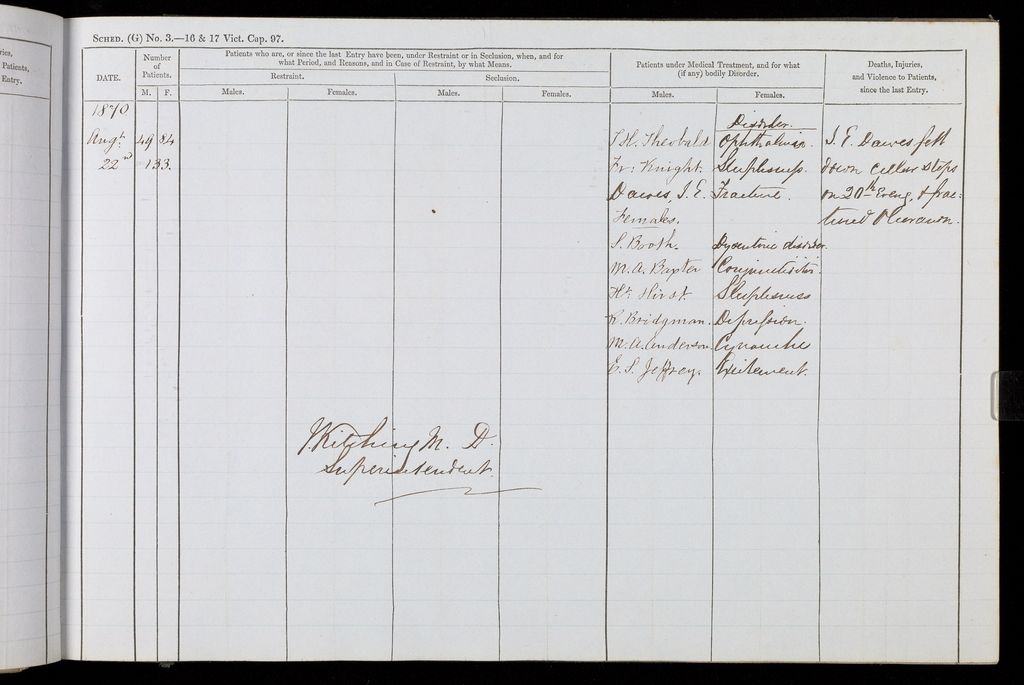 ries,
Patients,
Entry.
SCHED. (G) No. 3.—16 & 17 Vict. Cap. 97.
DATE.
Number of Patients.
M. F.
Patients who are, or since the last Entry have been, under Restraint or in Seclusion, when, and for
what Period, and Reasons, and in Case of Restraint, by what Means.
Restraint. Seclusion.
Males. Females. Males. Females.
Patients under Medical Treatment, and for what
(if any) bodily Disorder.
Males. Females.
Deaths, Injuries,
and Violence to Patients,
since the last Entry.
1870
Disorder.
Augt. 49 84 T. H. Theobald Ophthalmia. J. E. Dawes fell
22nd 133. Fr: Knight. Sleeplessness. down cellar steps
Dawes, J. E. Fracture. on 20th Eveng. & frac-
Females. tured
S. Booth. Dysenteric disorder.
M. A. Baxter Conjunctivitis.
Ht. Hirst. Sleeplessness
R. Bridgman. Depression.
M. A. Anderson. Cynanche
E. S. Jeffrey. Excitement.
J. Kitching M. D.
Superintendent.